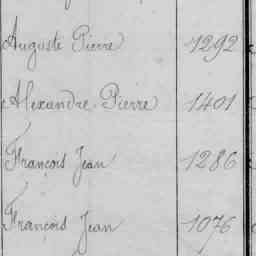 Auguste Pierre 1292
Alexandre Pierre 1401
François Jean 1286
François Jean 1076